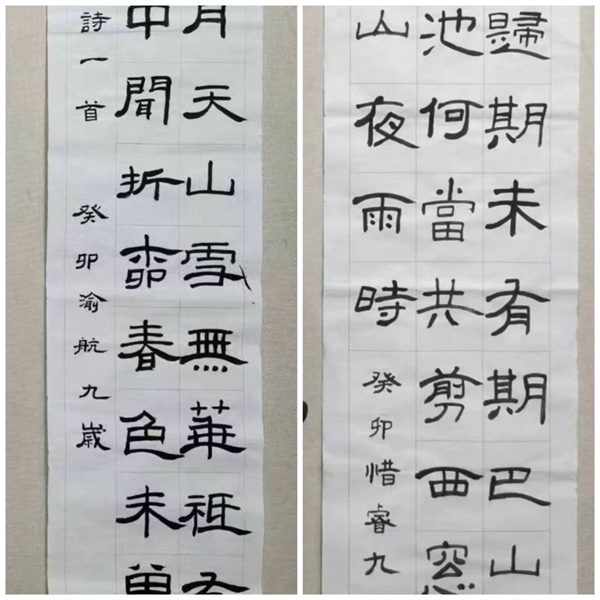 月天山雪無華祗有
中聞折柳春色未曾
詩一首 癸卯渝航九歲
歸期未有期巴山
池何當共剪西窗
山夜雨時
癸卯惜睿九